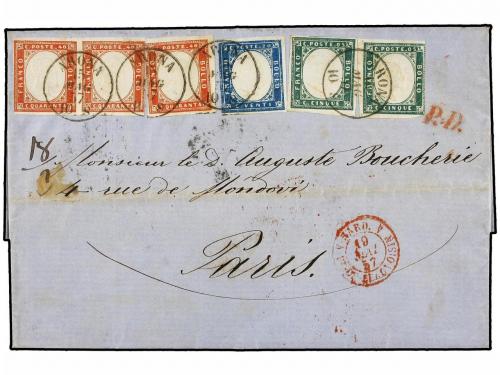 C. POSTE. 40 C. POSTE. 40 C. POSTE. 40 C. POSTE. 20 C. POSTE. 05 C. POSTE. 05
FRANCO BOLLO FRANCO BOLLO FRANCO BOLLO FRANCO BOLLO FRANCO BOLLO FRANCO BOLLO
C. QUARANTA C. QUARANTA C. QUARANTA C. VENTI C. CINQUE C. CINQUE
P.D.
18
Monsieur le d. Auguste Boucherie
4 rue de Mondovi
Paris.